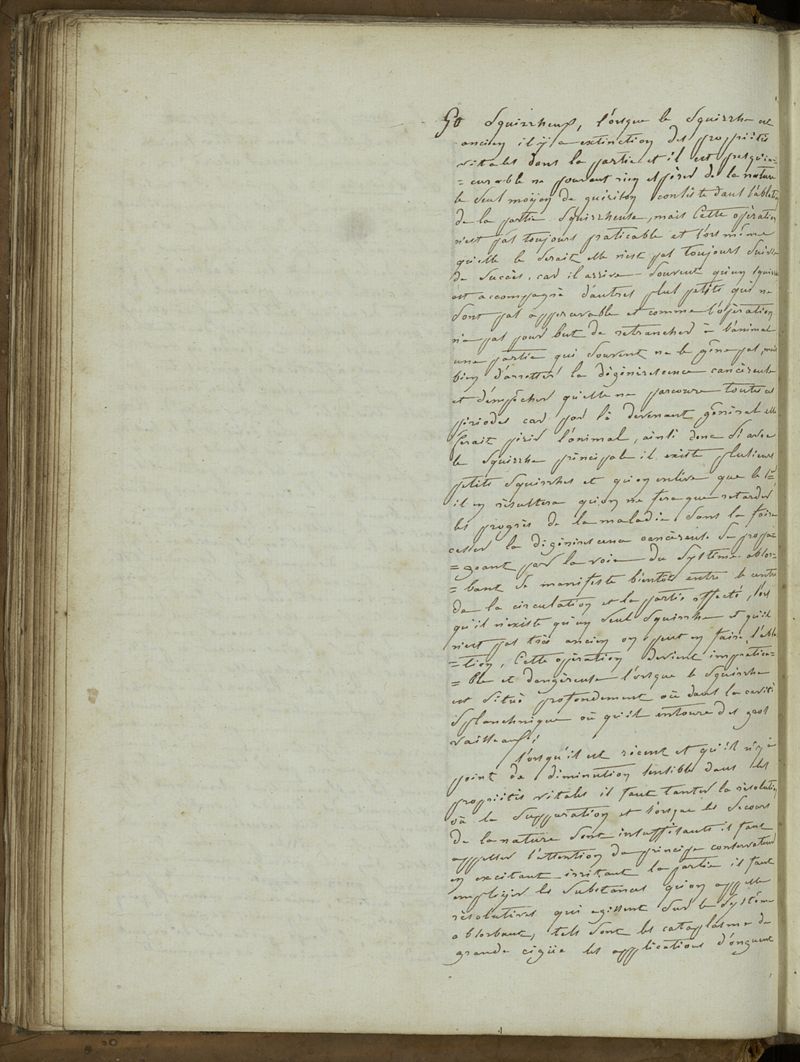 50 Squirrheux, lorsque le Squirrhe est
ancien il y a extinction des propriétés
vitales dans la partie et il est presqu'in
= curable ne pouvant rien espérer de la nature
le seul moÿen de guérison consiste dans l'ablation
de la partie Squirrheuse, mais Cette opération
n'est pas toujours praticable et lors même
qu'elle le Serait elle n'est pas toujours Suivie
de Succès. car il arrive Souvent qu'un Squirrhe
est accompagné d'autres plus petits qui ne
Sont pas appercevable et comme l'opération
n'a pas pour but de retrancher à l'animal
une partie qui Souvent ne le gêne pas, mais
bien d'arretter la dégénérescence cancéreuse
et d'empêcher qu'elle ne parcoure toutes ces
périodes car par là devenant général elle
ferait périr l'animal, ainsi donc Si avec
le Squirrhe principale il existe plusieurs
petits Squirrhes et qu'on enlève que le 1er
il en résultera qu'on ne fera que retarder
les progrès de la maladie, Sans la faire
cesser la dégénérescence cancéreuse Se propa
= geant par la voie du Système absor
= bant Se manifeste bientôt entre le centre
de la circulation et la partie affecté,
qu'il n'existe qu'un Seul Squirrhe et qu'il
n'est pas très ancien on peut en faire l'abla
= tion, Cette opération devient impratica=
= ble et dangéreuse lorsque le Squirrhe
est Situé profondement où dans la cavité
Splanchnique où qu'il entoure des gros
vaisseaux;
lorsqu'il est récent et qu'il n'y a
point de diminution sensible dans les
propriétés vitales il faut tanter la résolution
où la Suppuration et lorsque les Secours
de la nature Sont insuffisants il faut
appeller l'attention du principe conservateur
en excitant irritant la partie il faut
emploÿer les Substances qu'on appelle
résolutives qui agissent Sur le Système
absorbant, tels Sont les cataplasme de
grande cigüe les applications d'onguent